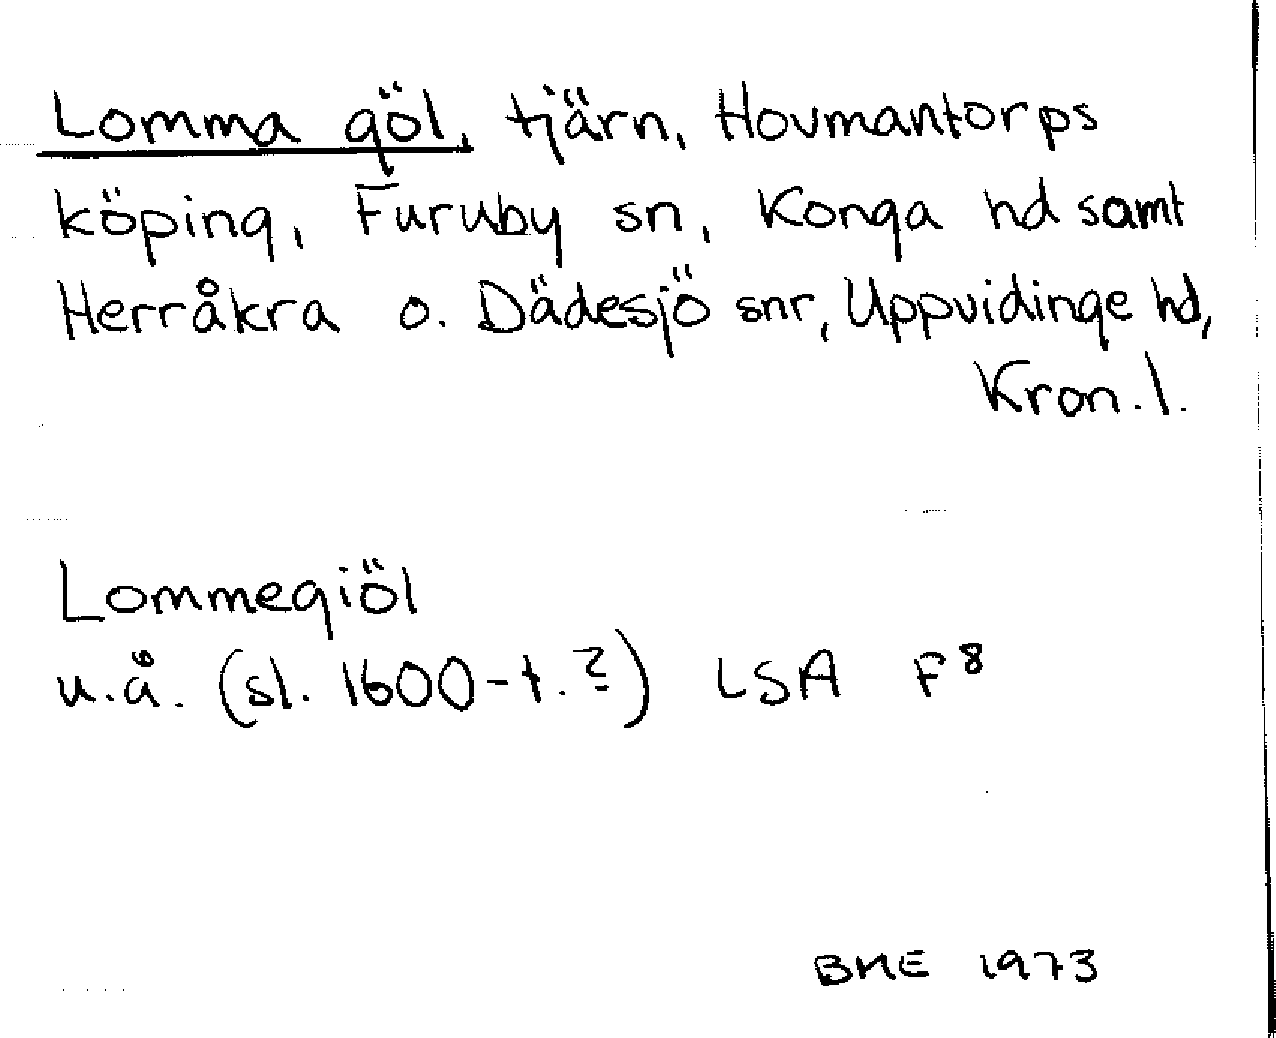 Lomma göl, tjärn, Hovmantorps
köping, Furuby sn, Konga hd samt
Herråkra o. Dädesjö snr, Uppvidinge hd,
Kron. l.
Lommegiöl
u.å. (sl. 1600-t.?) LSA F⁸
BME 1973